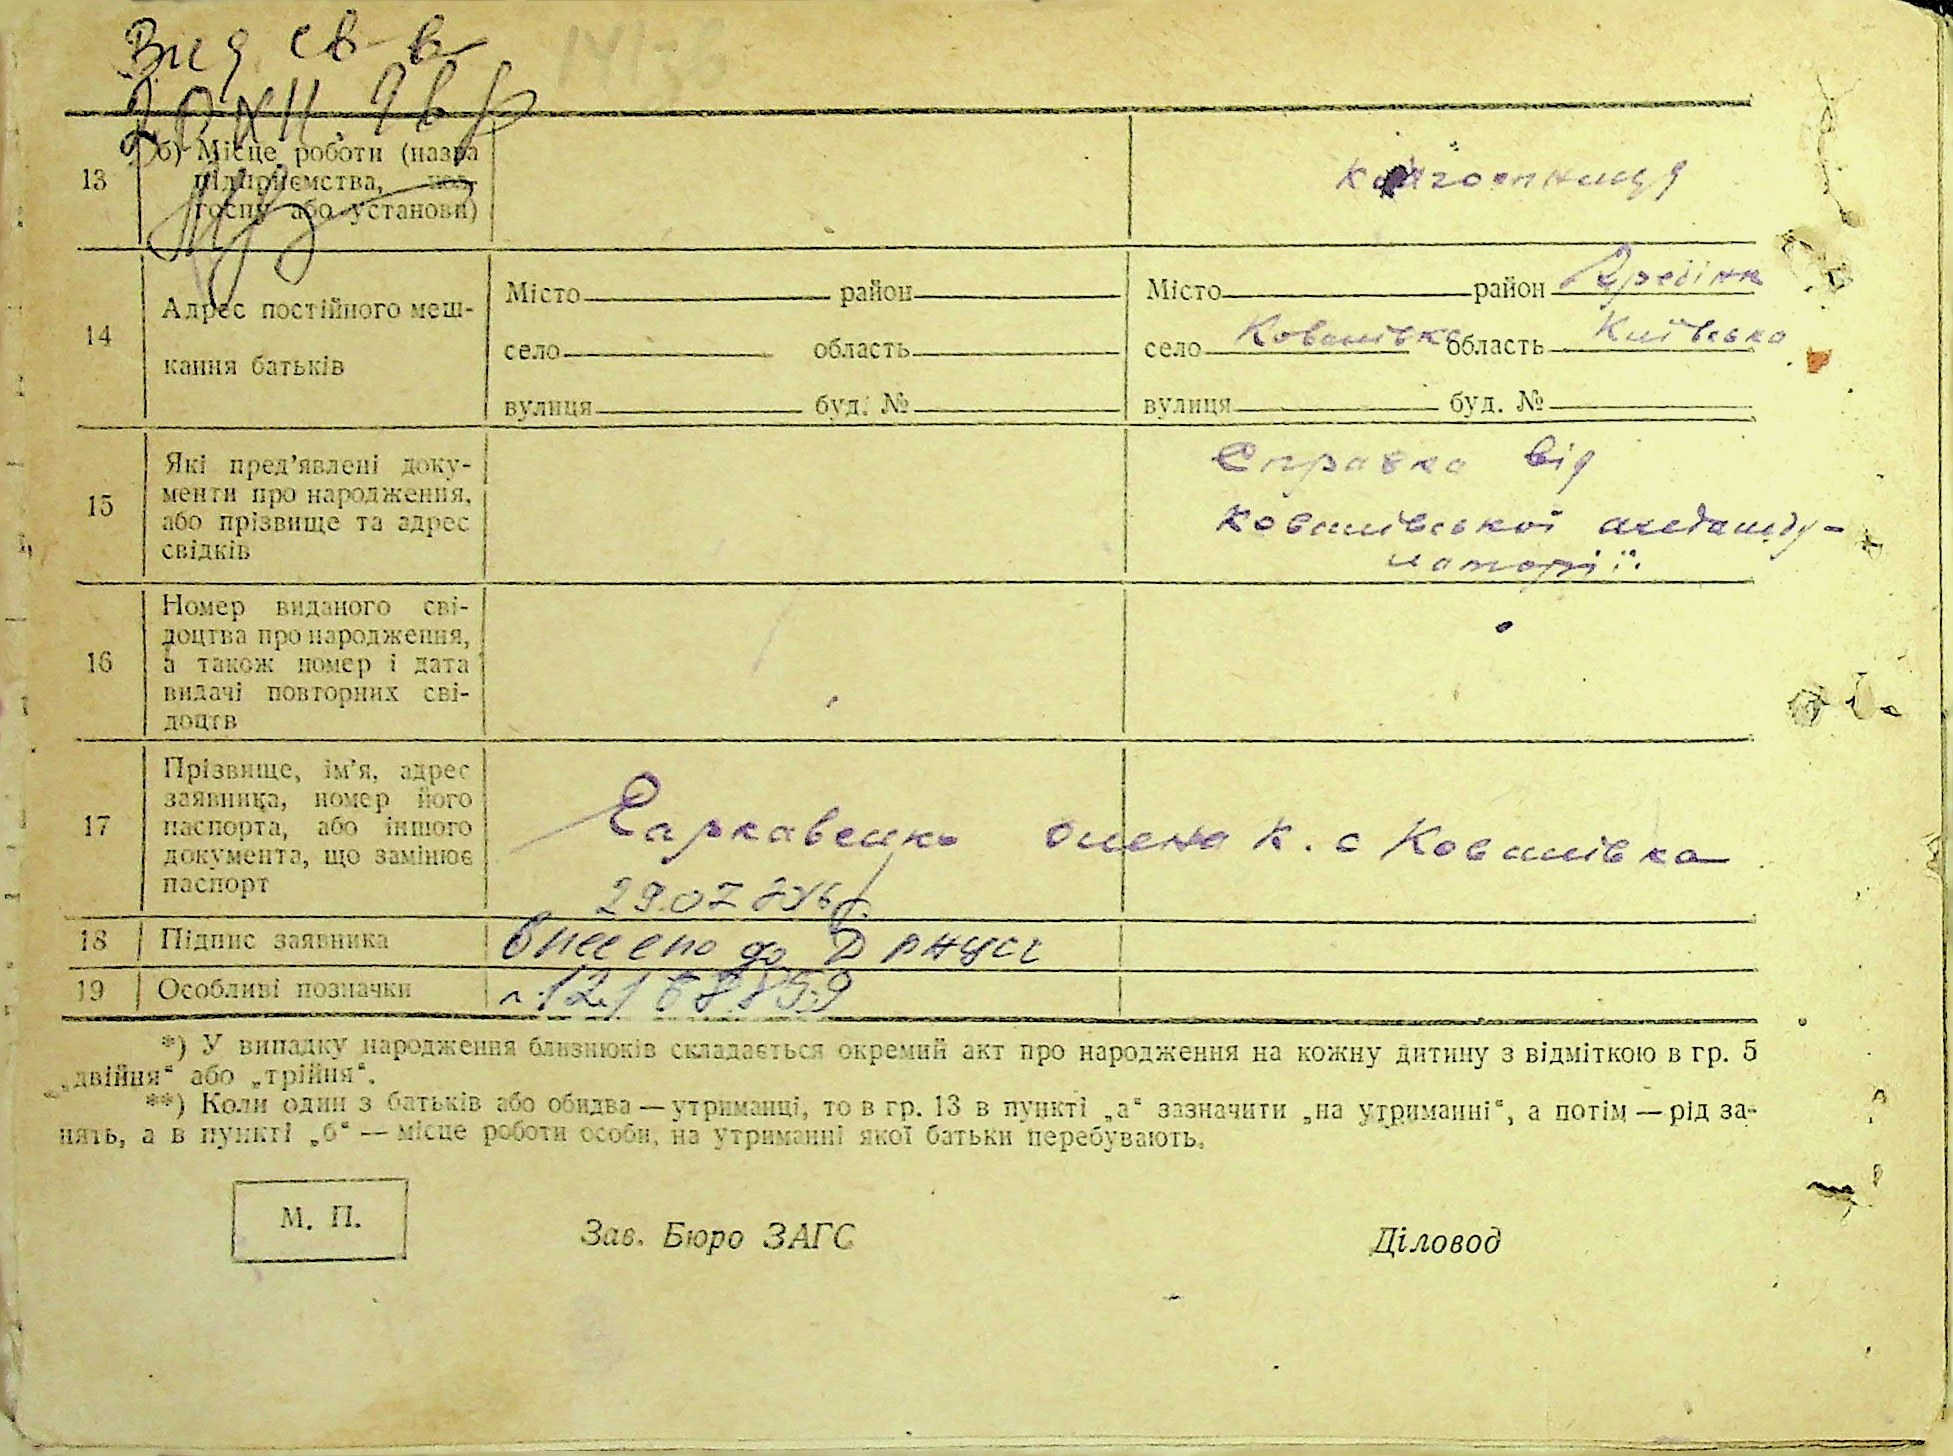 Вид св-в
13
б) Місце роботи (назва
підприємства, кол-
госпу або установи)
колгоспниця
14
Адрес постійного меш-
кання батьків
Місто район
село область
вулиця буд. №
Місто район
село Кованівка область Київська
вулиця буд. №
15
Які пред’явлені доку-
менти про народження,
або прізвище та адрес
свідків
Справка від
Кованівської
16
Номер виданого сві-
доцтва про народження,
а також номер і дата
видачі повторних сві-
доцтв
17
Прізвище, ім’я, адрес
заявника, номер його
паспорта, або іншого
документа, що замінює
паспорт
Гаркавенко Олена К. с Кованівка
18
Підпис заявника
внесено до
19
Особливі позначки
*) У випадку народження близнюків складається окремий акт про народження на кожну дитину з відміткою в гр. 5
„двійня“ або „трійня“.
**) Коли один з батьків або обидва — утриманці, то в гр. 13 в пункті „а“ зазначити „на утриманні“, а потім — рід за-
нять, а в пункті „б“ — місце роботи особи, на утриманні якої батьки перебувають.
М. П.
Зав. Бюро ЗАГС
Діловод